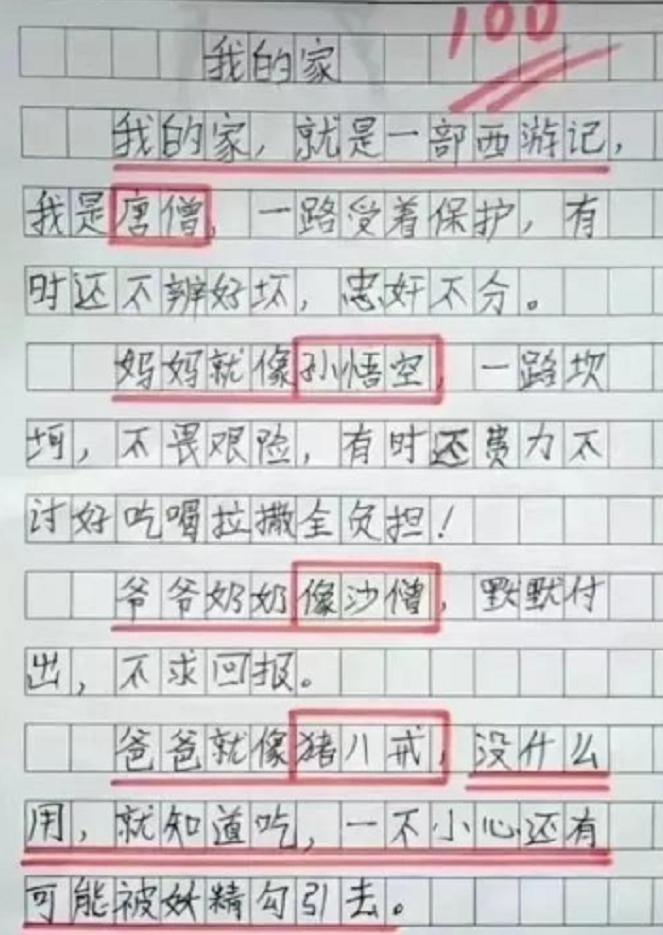 100
我的家
我的家，就是一部西游记，
我是唐僧，一路受着保护，有
时还不辨好坏，忠奸不分。
妈妈就像孙悟空，一路坎
坷，不畏艰险，有时还费力不
讨好吃喝拉撒全负担！
爷爷奶奶像沙僧，默默付
出，不求回报。
爸爸就像猪八戒，没什么
用，就知道吃，一不小心还有
可能被妖精勾引去。